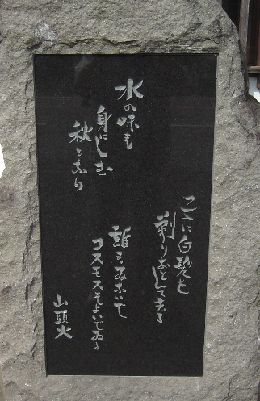 ここに白髪を
剃りおとして去る
水の味も
身にしむ
秋となり
誰もゐないで
コスモスそよいでゐる
山頭火